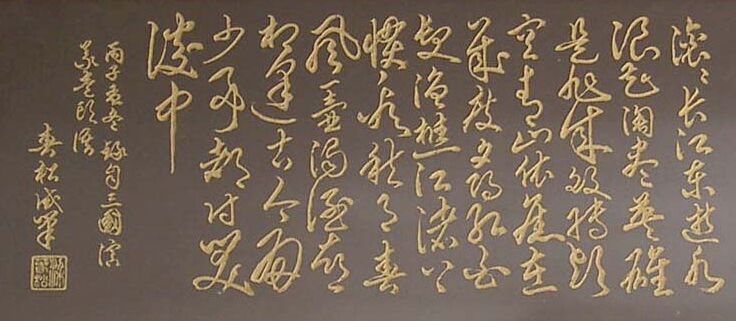 滚滚长江东逝水
浪花淘尽英雄
是非成败转头
空青山依旧在
几度夕阳红白
发渔樵江渚上
惯看秋月春
风一壶浊酒喜
相逢古今多
少事都付笑
谈中
丙子冬录自三國演
义卷头语
春松